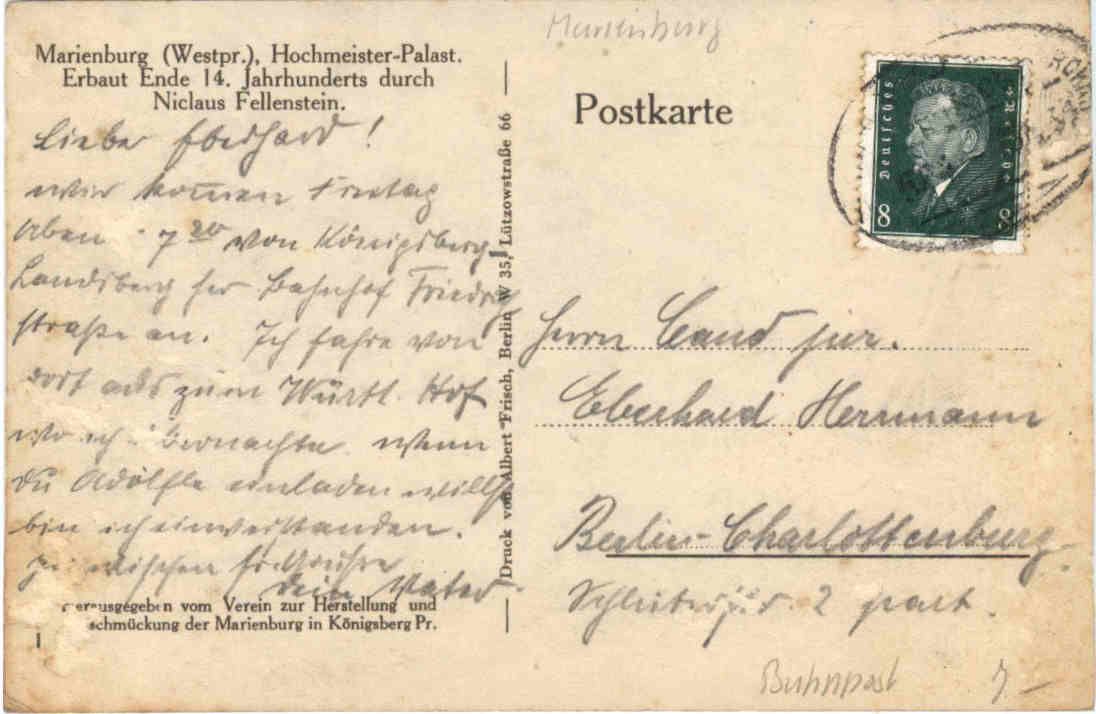 Marienburg
Marienburg (Westpr.), Hochmeister-Palast.
Erbaut Ende 14. Jahrhunderts durch
Niclaus Fellenstein.
Lieber Eberhard!
wir komen Freitag
Aben 7 20 von Königsberg-
Landsberg her Bahnhof Friedrich
straße an. Ich fahre von
dort aus zum Württ. Hof
wo ich übernachte. wenn
du Adölfle einladen willst
bin ich einverstanden.
Dein Vater
herausgegeben vom Verein zur Herstellung und
schmückung der Marienburg in Königsberg Pr.
Druck von Albert Frisch, Berlin W 35, Lützowstraße 66
Postkarte
Deutsches Reich
8 8
Herrn Cand jur.
Eberhard Herrmann
Berlin-Charlottenburg
2 part.
Bahnpost